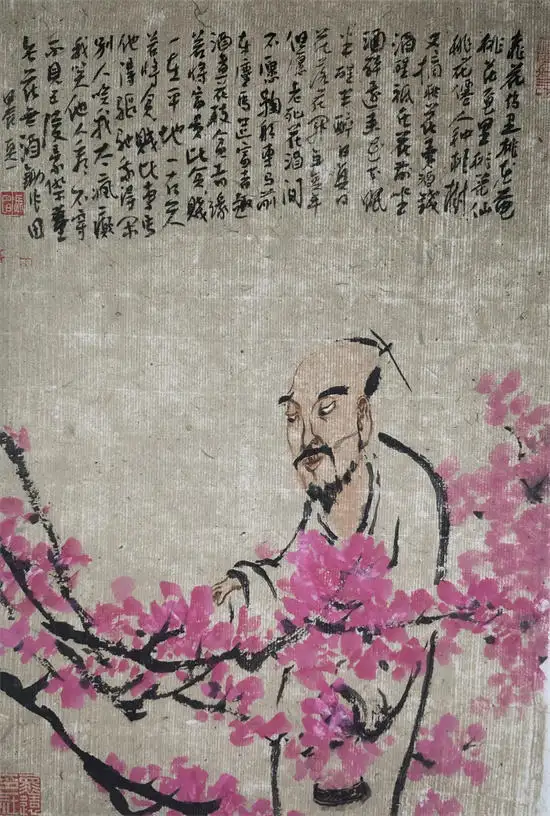 桃花坞里桃花庵
桃花庵里桃花仙
桃花僊人种桃树
又摘桃花卖酒钱
酒醒祇在花前坐
酒醉還来花下眠
半醒半醉日复日
花落花開年复年
但愿老死花酒间
不愿鞠躬車马前
車塵马足富者趣
酒盏花枝贫者缘
若将富贵比贫賤
一在平地一在天
若将贫賤比車马
他得驱驰我得闲
别人笑我太疯癫
我笑他人看不穿
不見五陵豪傑墓
无花无酒锄作田
甲辰夏一